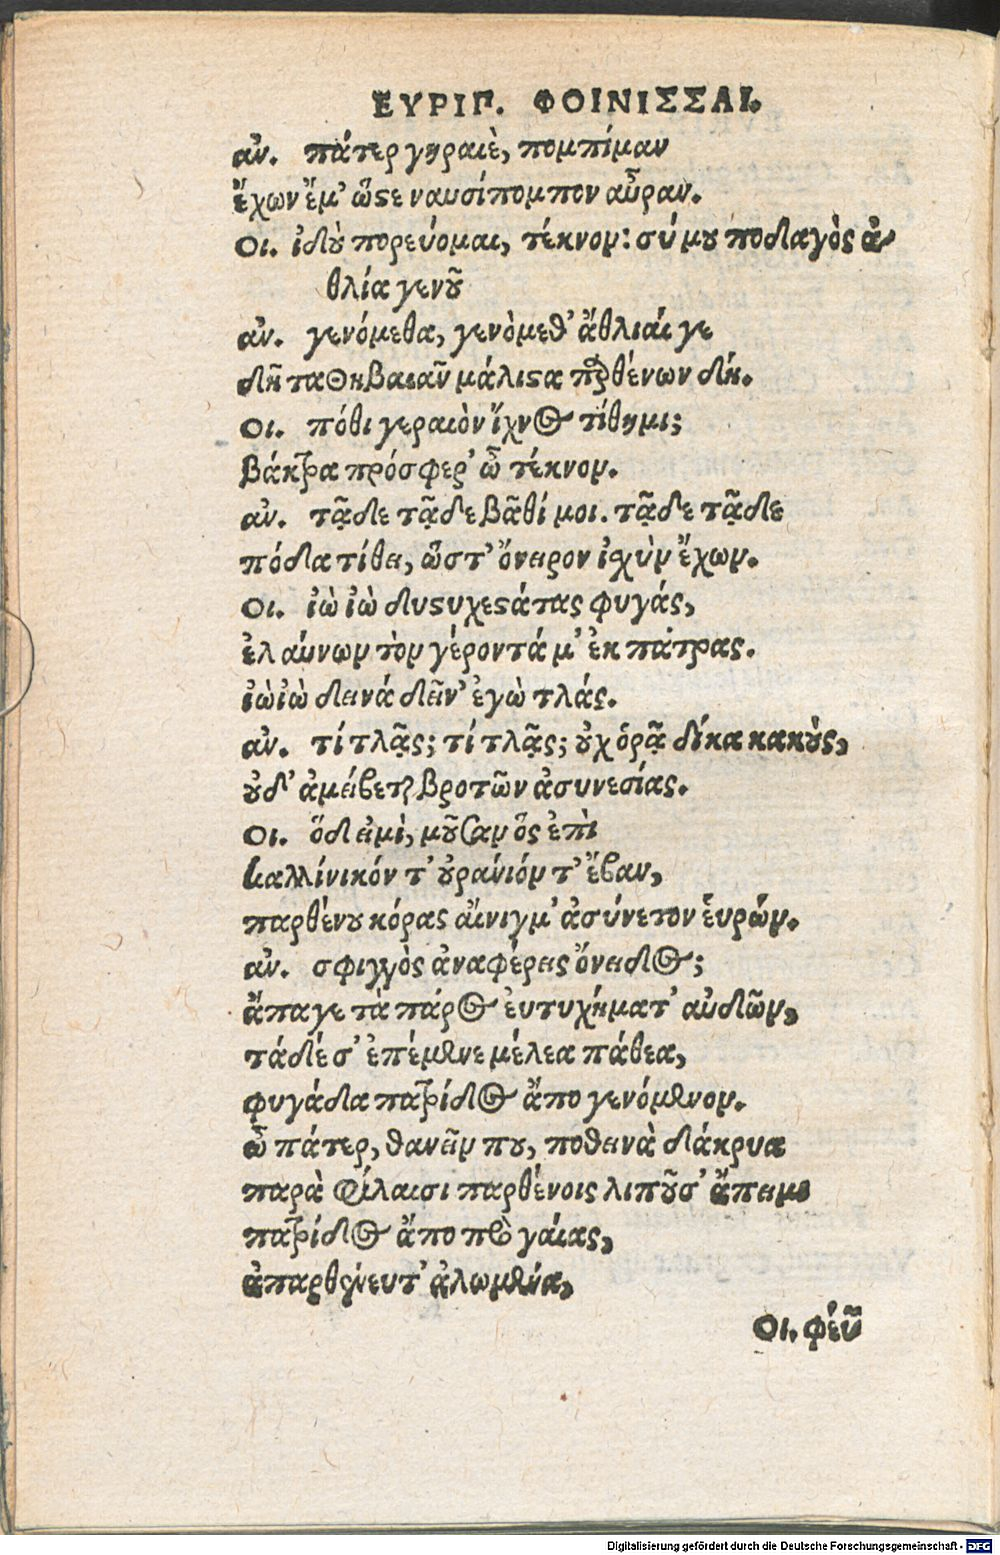 ΕΥΡΙΠ. ΦΟΙΝΙΣΣΑΙ.
αν. πάτερ γηραιὲ, πομπίμαν
ἔχων ἔμ' ὥστε ναυσίπομπον αὖραν.
Οι. ἰδοὺ πορεύομαι, τέκνον: σύ μου ποδαγὸς ἀ-
θλία γενοῦ
αν. γενόμεθα, γενὸμεθ' ἄθλιαί γε
δῆτα Θηβαιᾶν μάλιστα παρθένων δή.
Οι. πόθι γεραιὸν ἴχνος τίθημι;
βάκτρα πρόσφερ' ὦ τέκνον.
αν. τᾷδε τᾷδε βᾶθί μοι. τᾷδε τᾷδε
πόδα τίθει, ὥστ' ὄνειρον ἰσχὺν ἔχων.
Οι. ἰὼ ἰὼ δυστυχεστάτας φυγάς,
ἐλαύνων τὸν γέροντά μ' ἐκ πάτρας.
ἰὼ ἰὼ δεινά δεῖν' ἐγὼ τλάς.
αν. τί τλᾷς; τί τλᾷς; οὐχ ὁρᾷ δίκα κακοὺς,
οὐδ' ἀμείβεται βροτῶν ἀσυνεσίας.
Οι. ὅδ εἰμὶ, μοῦσαν ὃς ἐπὶ
καλλίνικόν τ' οὐράνιόν τ' ἔβαν,
παρθένου κόρας αἴνιγμ' ἀσύνετον εὑρών.
αν. σφιγγὸς ἀναφέρεις ὄνειδος;
ἄπαγε τὰ πάρος ἐυτυχήματ' αὐδῶν,
τάδέ σ' ἐπέμενε μέλεα πάθεα,
φυγάδα πατρίδος ἄπο γενόμενον.
ὦ πάτερ, θανεῖν που, ποθεινὰ δάκρυα
παρὰ φίλαισι παρθένοις λιποῦσ' ἄπειμι
πατρίδος ἄπο πρὸ γαίας,
ἀπαρθένευτ' ἀλωμένα,
Οι. φέυ